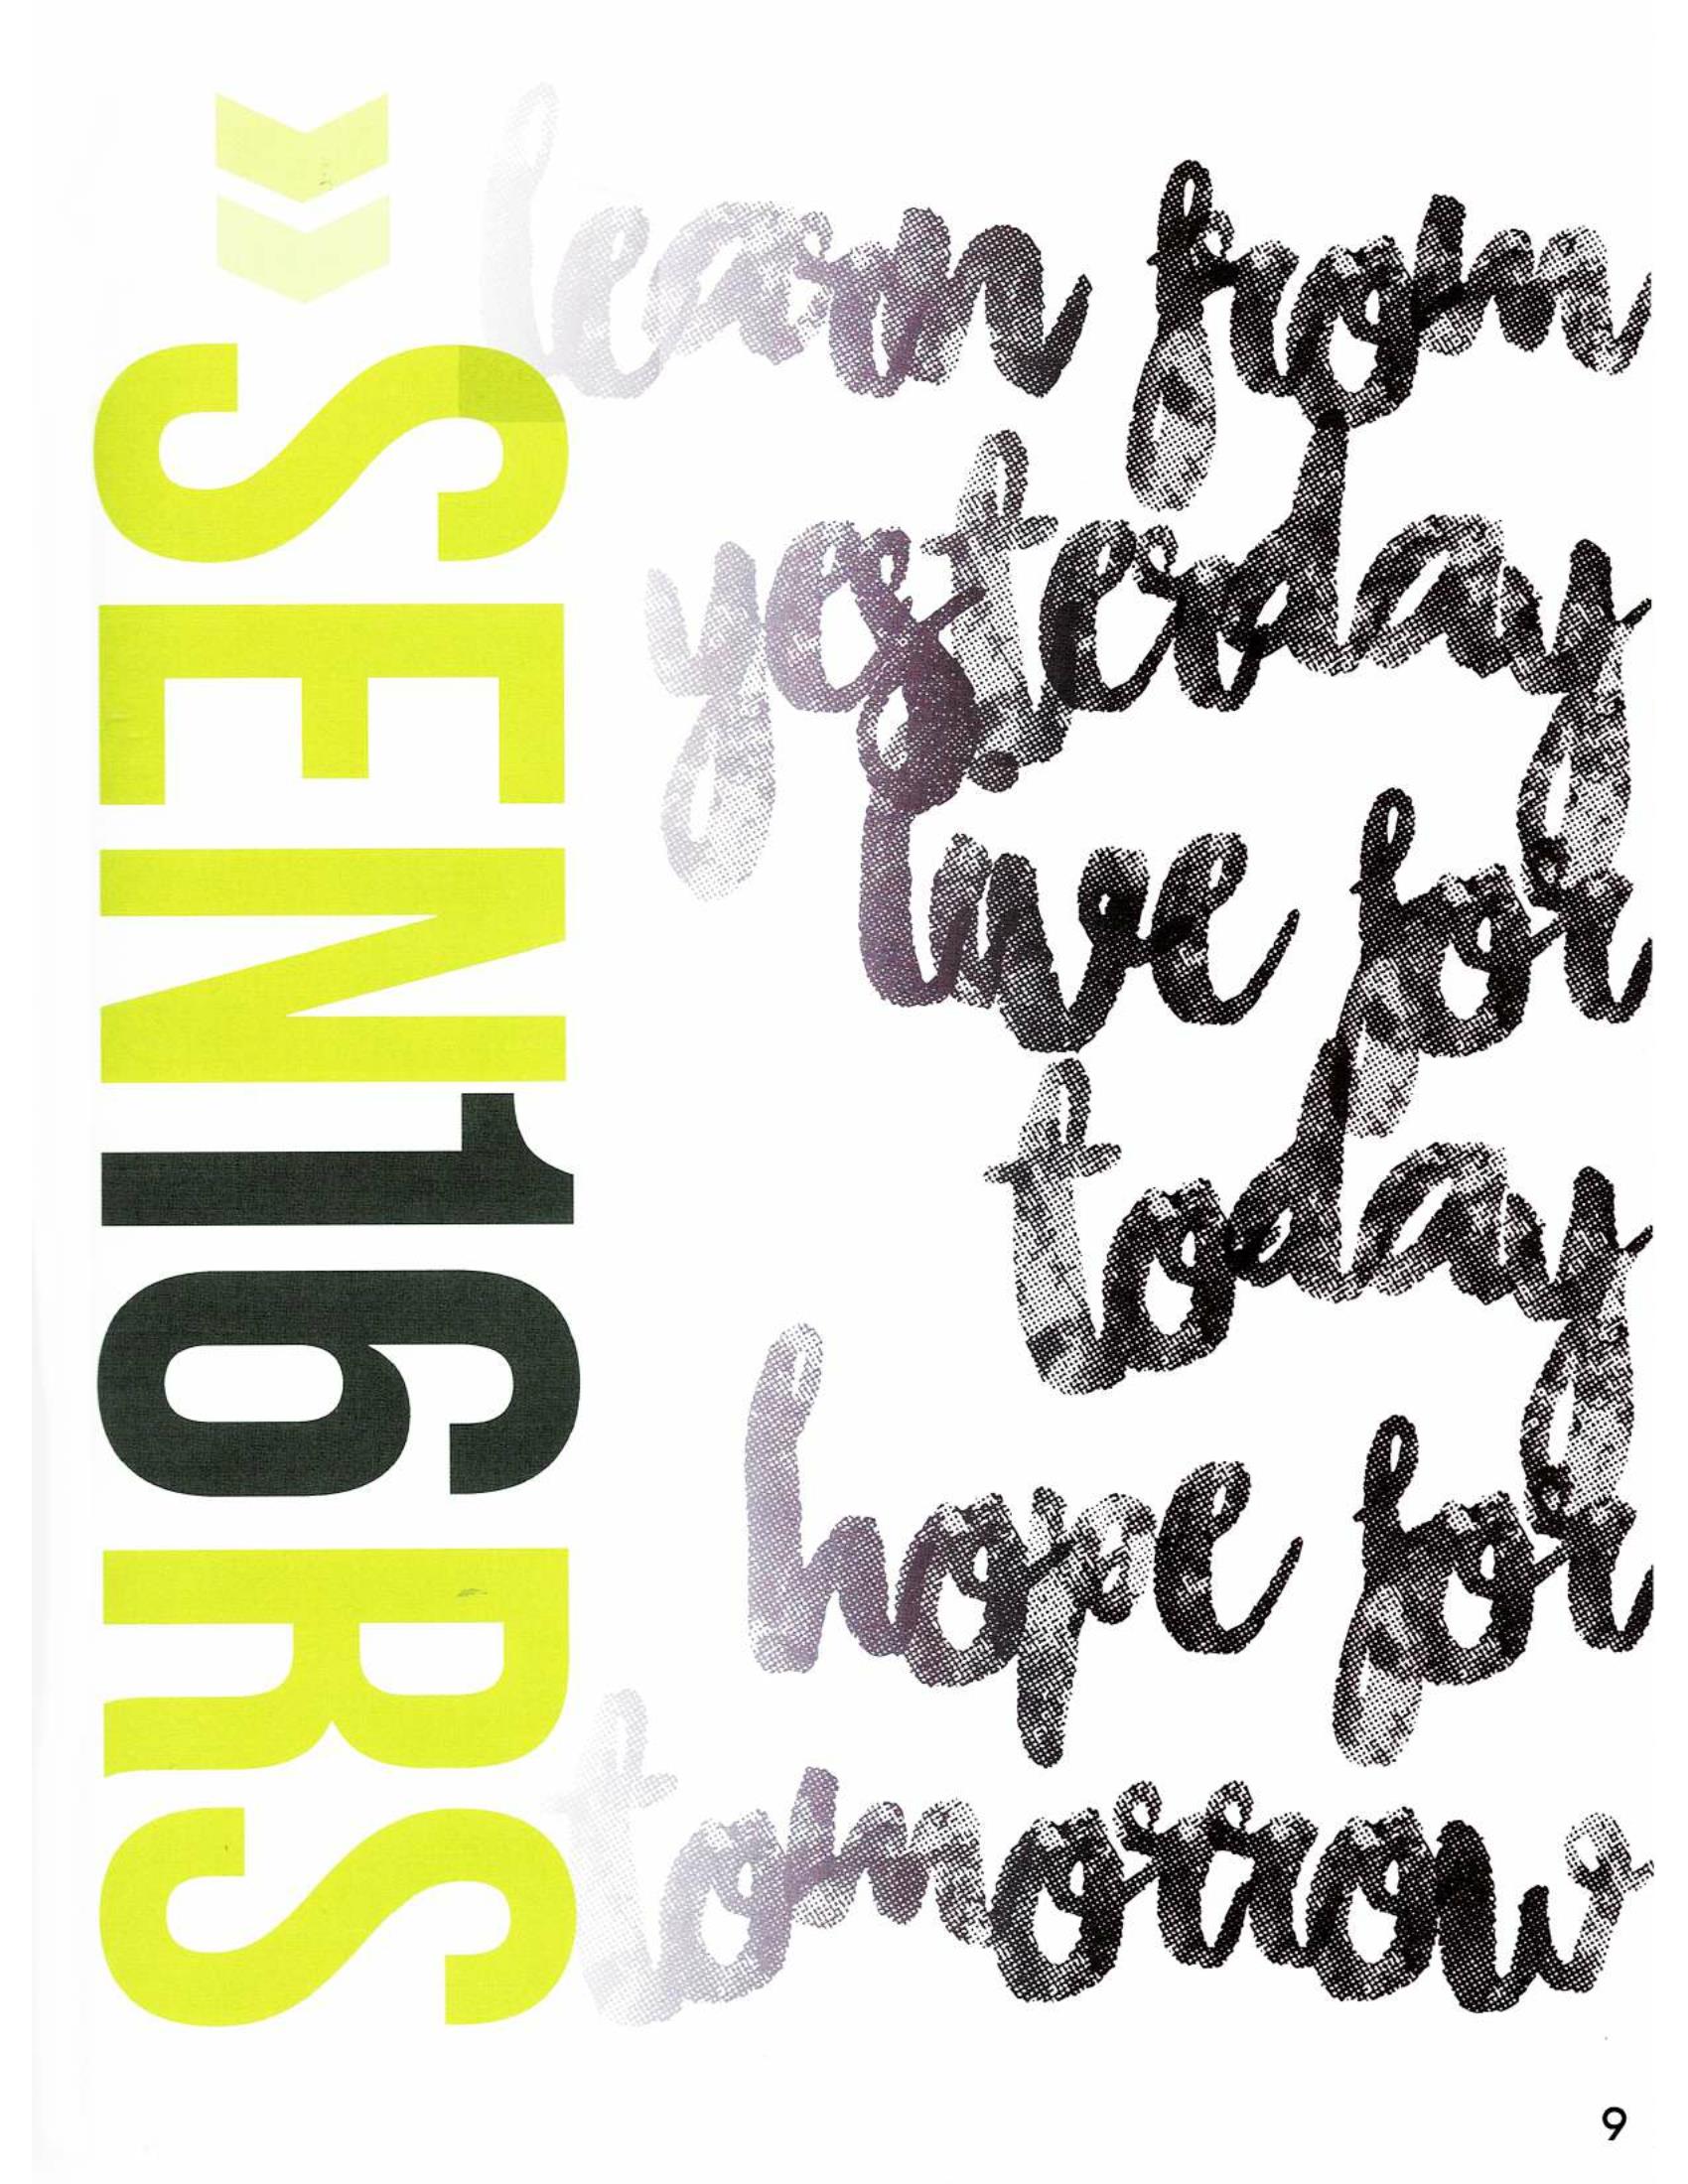 SEN16RS
learn from
yesterday.
live for
today
hope for
tomorrow
9